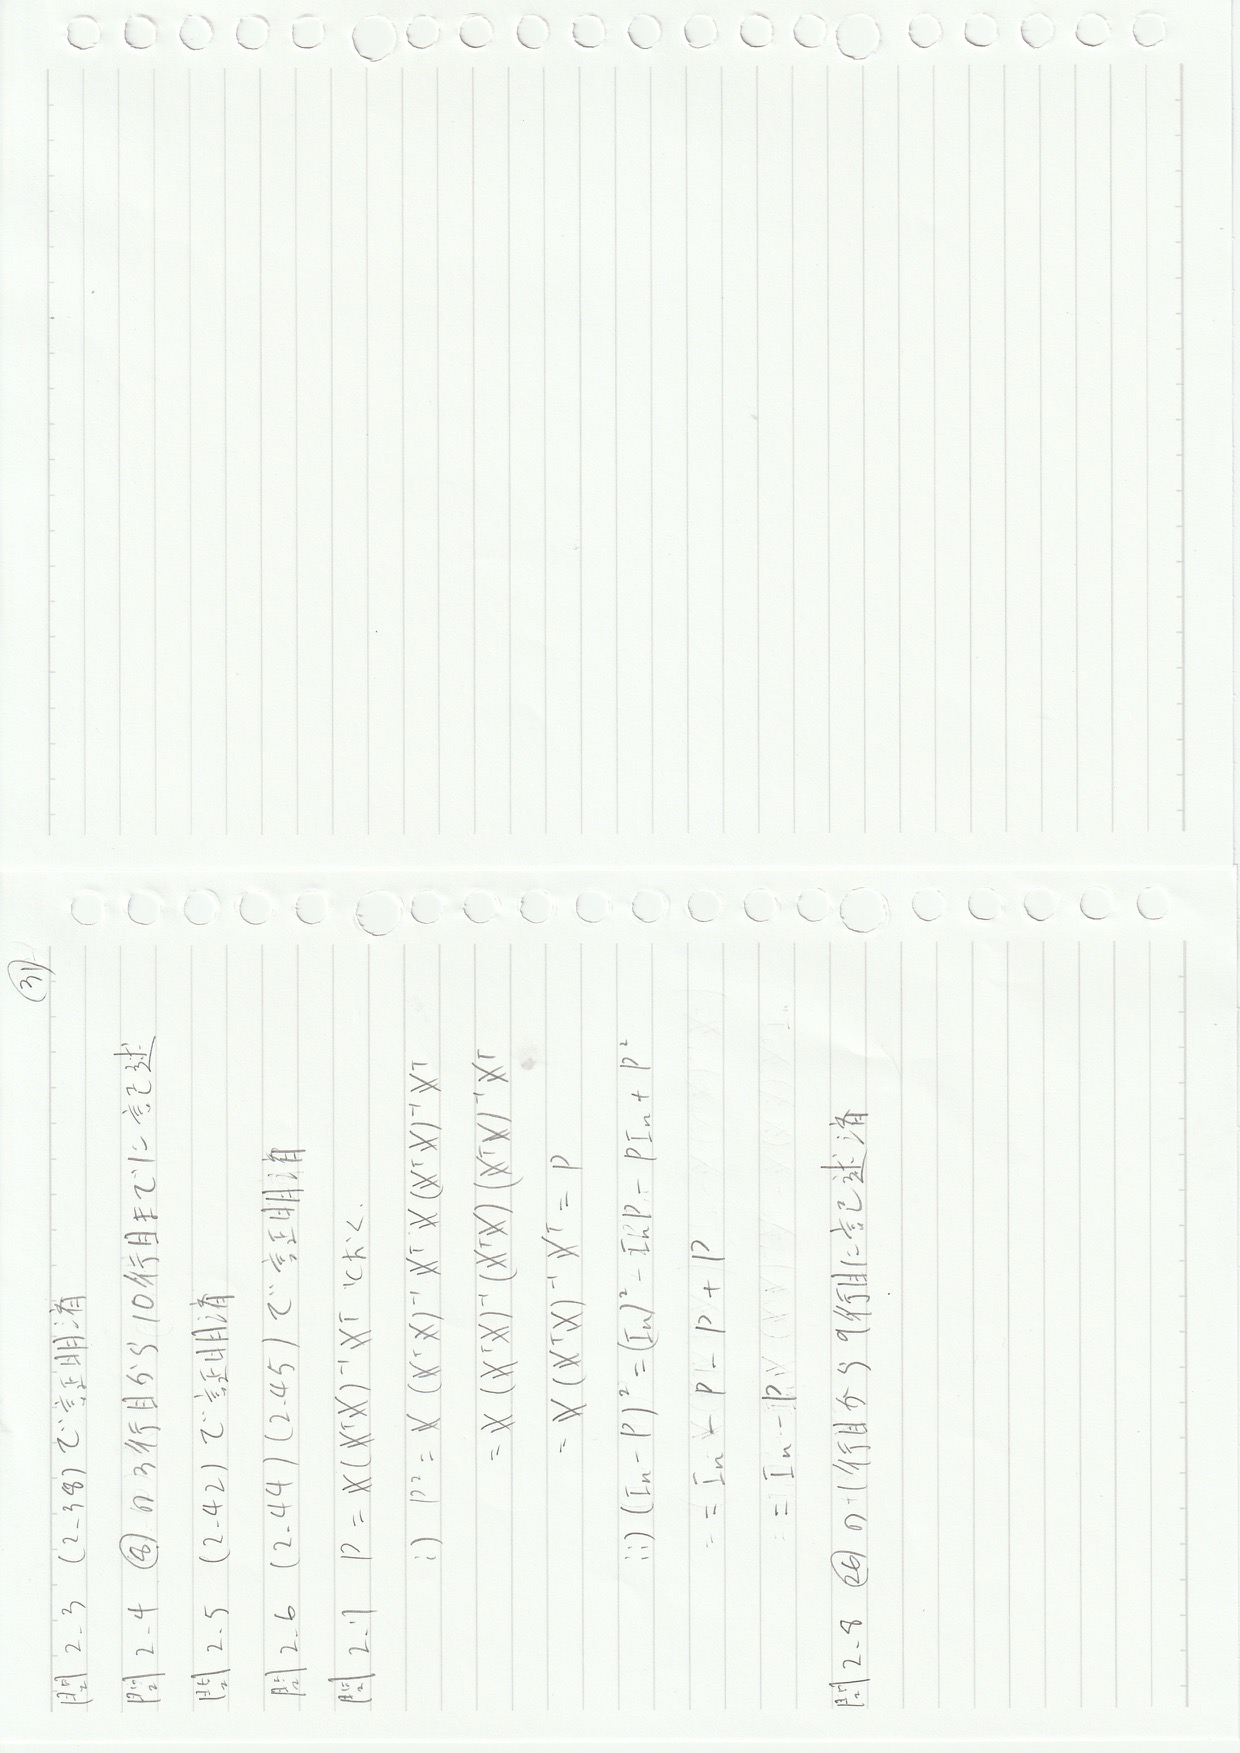 ㉛
問 2.3 (2.38) で証明済
問 2.4 ⑧ の 3行目から 10行目までに 記述
問 2.5 (2.42) で 証明済
問 2.6 (2.44) (2.45) で 証明済
問 2.7 P = X(XᵀX)⁻¹Xᵀ とおく.
i) P² = X (XᵀX)⁻¹ Xᵀ X (XᵀX)⁻¹ Xᵀ
= X (XᵀX)⁻¹ (XᵀX) (XᵀX)⁻¹ Xᵀ
= X (XᵀX)⁻¹ Xᵀ = P
ii) (In - P)² = (In)² - InP - PIn + P²
= In - P - P + P
= In - P
問 2.8 ㉖ の -1行目から 9行目に記述済